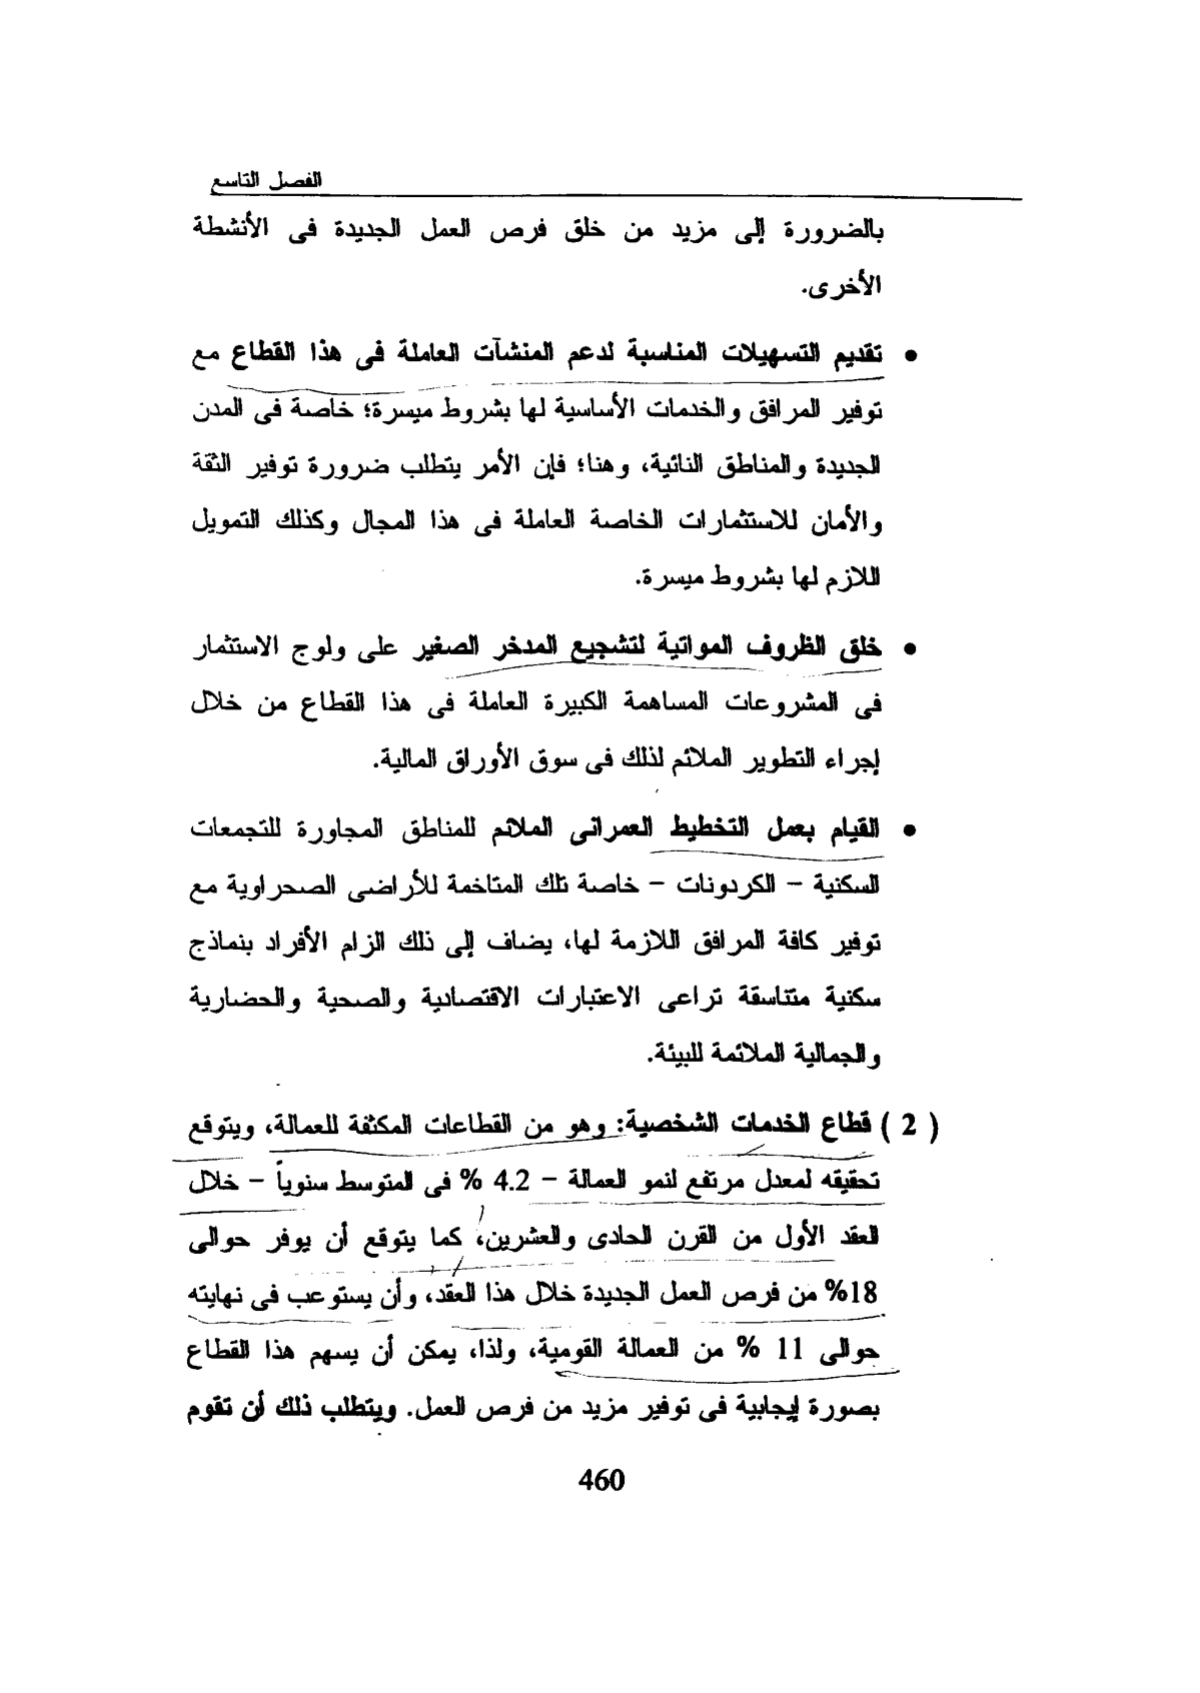 الفصل التاسع
بالضرورة إلى مزيد من خلق فرص العمل الجديدة فى الأنشطة
الأخرى.
• تقديم التسهيلات المناسبة لدعم المنشآت العاملة فى هذا القطاع مع
توفير المرافق والخدمات الأساسية لها بشروط ميسرة؛ خاصة فى المدن
الجديدة والمناطق النائية، وهنا؛ فإن الأمر يتطلب ضرورة توفير الثقة
والأمان للاستثمارات الخاصة العاملة فى هذا المجال وكذلك التمويل
اللازم لها بشروط ميسرة.
• خلق الظروف المواتية لتشجيع المدخر الصغير على ولوج الاستثمار
فى المشروعات المساهمة الكبيرة العاملة فى هذا القطاع من خلال
إجراء التطوير الملائم لذلك فى سوق الأوراق المالية.
• القيام بعمل التخطيط العمرانى الملائم للمناطق المجاورة للتجمعات
السكنية – الكردونات – خاصة تلك المتاخمة للأراضى الصحراوية مع
توفير كافة المرافق اللازمة لها، يضاف إلى ذلك الزام الأفراد بنماذج
سكنية متناسقة تراعى الاعتبارات الاقتصادية والصحية والحضارية
والجمالية الملائمة للبيئة.
( 2 ) قطاع الخدمات الشخصية: وهو من القطاعات المكثفة للعمالة، ويتوقع
تحقيقه لمعدل مرتفع لنمو العمالة – 4.2 % فى المتوسط سنوياً – خلال
العقد الأول من القرن الحادى والعشرين، كما يتوقع أن يوفر حوالى
18% من فرص العمل الجديدة خلال هذا العقد، وأن يستوعب فى نهايته
حوالى 11 % من العمالة القومية، ولذا، يمكن أن يسهم هذا القطاع
بصورة إيجابية فى توفير مزيد من فرص العمل. ويتطلب ذلك أن تقوم
460